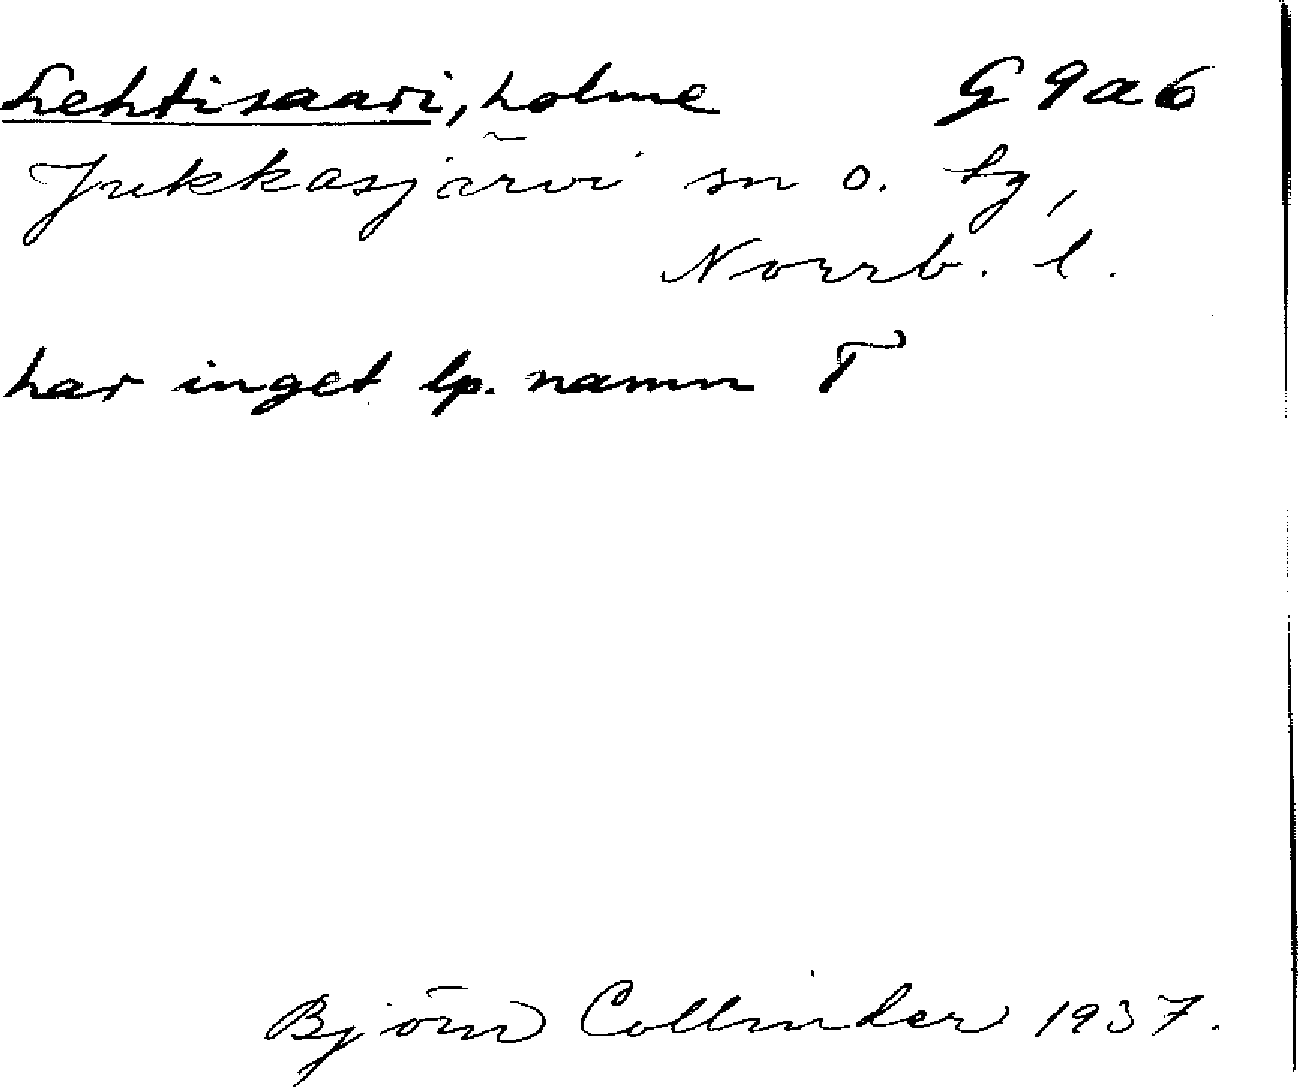 Lehtisaari, holme G 9 a 6
Jukkasjärvi sn o. tg,
Norrb. l.
har inget lp. namn T
Björn Collinder 1937.